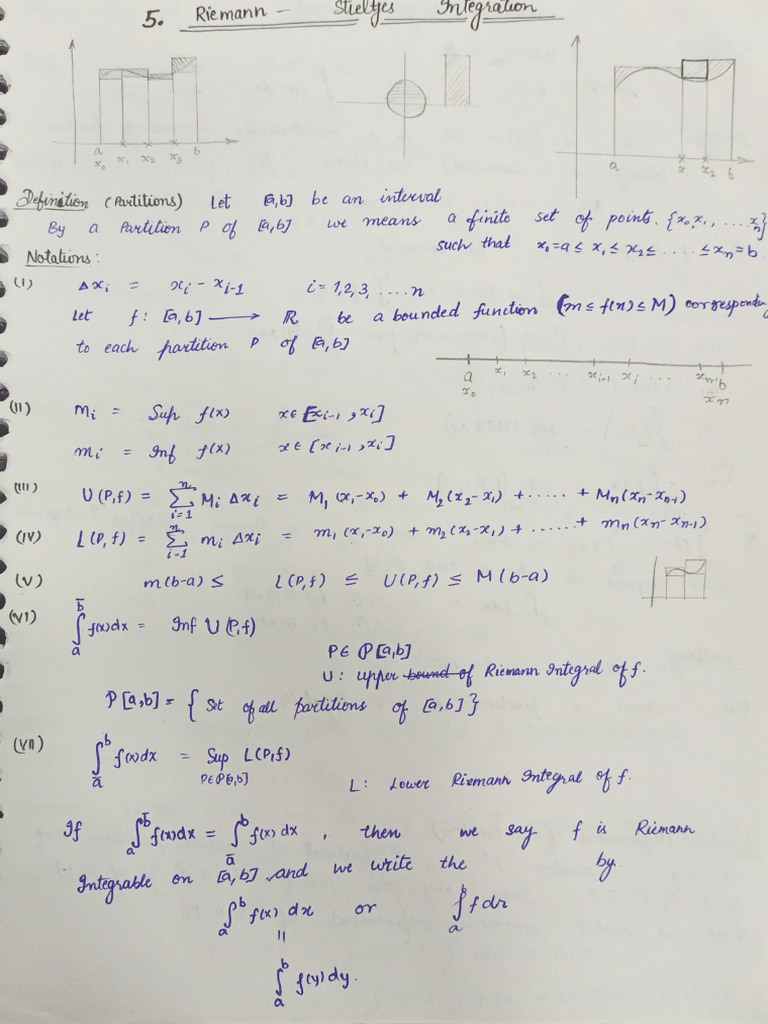 5. Riemann - Stieltjes Integration
a x₁ x₂ x₃ b
x₀
a x₁ x₂ b
Definition (Partitions) Let [a,b] be an interval
By a Partition P of [a,b] we means a finite set of points {x₀, x₁, .... xₙ}
such that x₀ = a ≤ x₁ ≤ x₂ ≤ ..... ≤ xₙ = b.
Notations:
(I) Δxᵢ = xᵢ - xᵢ₋₁ i = 1,2,3, .....n
Let f: [a,b] ⟶ ℝ be a bounded function (m ≤ f(x) ≤ M) corresponding
to each partition P of [a,b]
a x₁ x₂ ... xᵢ₋₁ xᵢ .... xₙ₋₁ b
x₀ xₙ
(II) Mᵢ = Sup f(x) x ∈ [xᵢ₋₁, xᵢ]
mᵢ = Inf f(x) x ∈ [xᵢ₋₁, xᵢ]
(III) U(P,f) = ∑ⁿᵢ₌₁ Mᵢ Δxᵢ = M₁(x₁-x₀) + M₂(x₂-x₁) +..... + Mₙ(xₙ-xₙ₋₁)
(IV) L(P,f) = ∑ⁿᵢ₌₁ mᵢ Δxᵢ = m₁(x₁-x₀) + m₂(x₂-x₁) + ..... + mₙ(xₙ-xₙ₋₁)
(V) m(b-a) ≤ L(P,f) ≤ U(P,f) ≤ M(b-a)
(VI) ∫ₐᵇ̄ f(x)dx = Inf U(P,f)
P ∈ P[a,b]
U: upper bound of Riemann Integral of f.
P[a,b] = { Set of all partitions of [a,b] }
(VII) ∫ₐ̄ᵇ f(x)dx = Sup L(P,f)
P∈P[a,b]
L: Lower Riemann Integral of f.
If ∫ₐᵇ̄ f(x)dx = ∫ₐ̄ᵇ f(x)dx, then we say f is Riemann
Integrable on [a,b] and we write the by.
∫ₐᵇ f(x) dx or ∫ₐᵇ f dx
||
∫ₐᵇ f(y)dy.